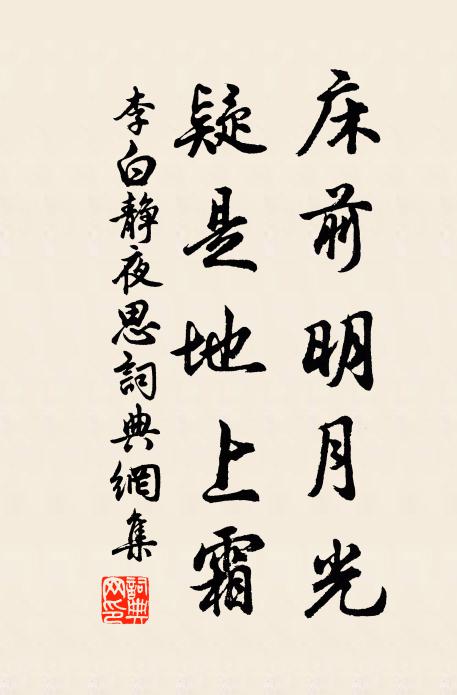 床前明月光
疑是地上霜
李白静夜思詞典網集
詞典
网印